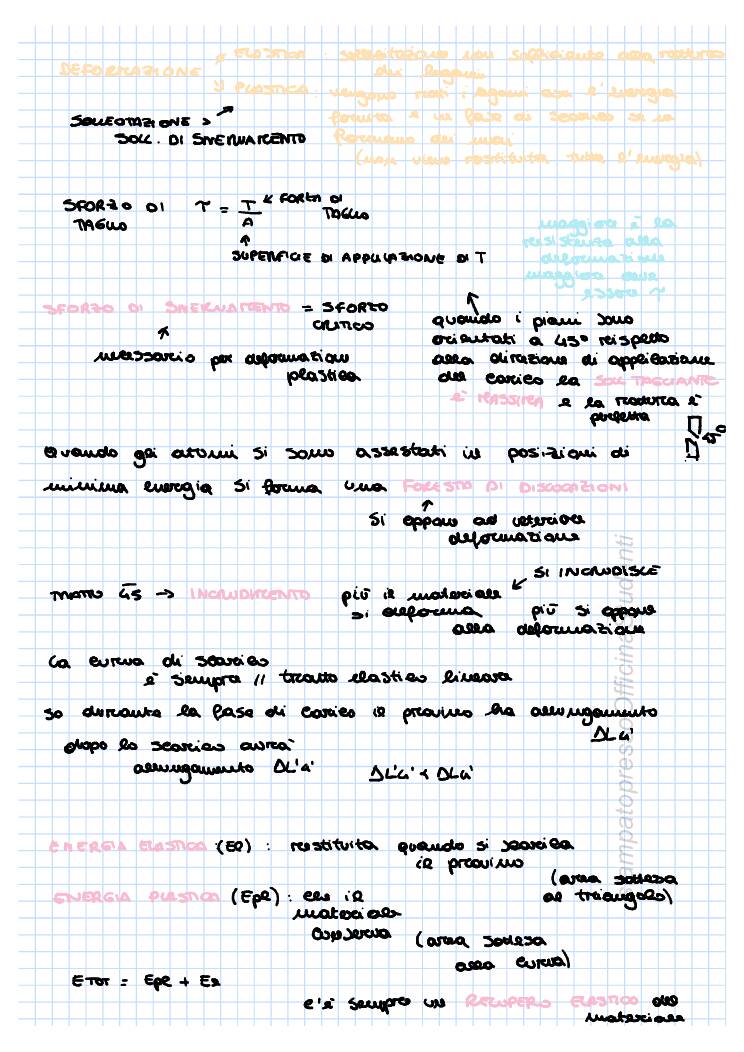 DEFORMAZIONE
ELASTICA: sollecitazione non sufficiente alla rottura
dei legami
PLASTICA: vengono rotti i legami ma l'energia
fornita e in fase di scarico si
formano dei nuovi
(non viene restituita tutta l'energia)
SOLLECITAZIONE >
SOLL. DI SNERVAMENTO
SFORZO DI TAGLIO
τ = T/A
FORZA DI TAGLIO
SUPERFICIE DI APPLICAZIONE DI T
maggiore è la
resistenza alla
deformazione
maggiore deve
essere τ
SFORZO DI SNERVAMENTO = SFORZO
CRITICO
necessario per deformazione
plastica
quando i piani sono
orientati a 45° rispetto
alla direzione di applicazione
del carico la SOLL TAGLIANTE
È MASSIMA e la rottura è
perfetta
45°
Quando gli atomi si sono assestati in posizioni di
minima energia si forma una FORESTA DI DISLOCAZIONI
si oppone ad ulteriore
deformazione
TRATTO 45 → INCRUDIMENTO
più il materiale
si deforma
SI INCRUDISCE
più si oppone
alla deformazione
La curva di scarico
è sempre // tratto elastico lineare
se durante la fase di carico il provino ha allungamento
ΔL4'
dopo lo scarico avrà
allungamento ΔL'4'
ΔL'4' < ΔL4'
ENERGIA ELASTICA (El): restituita quando si scarica
il provino
(area sottesa
al triangolo)
ENERGIA PLASTICA (Epl): che il
materiale
conserva
(area sottesa
alla curva)
ETOT = Epl + El
c'è sempre un RECUPERO ELASTICO del
materiale